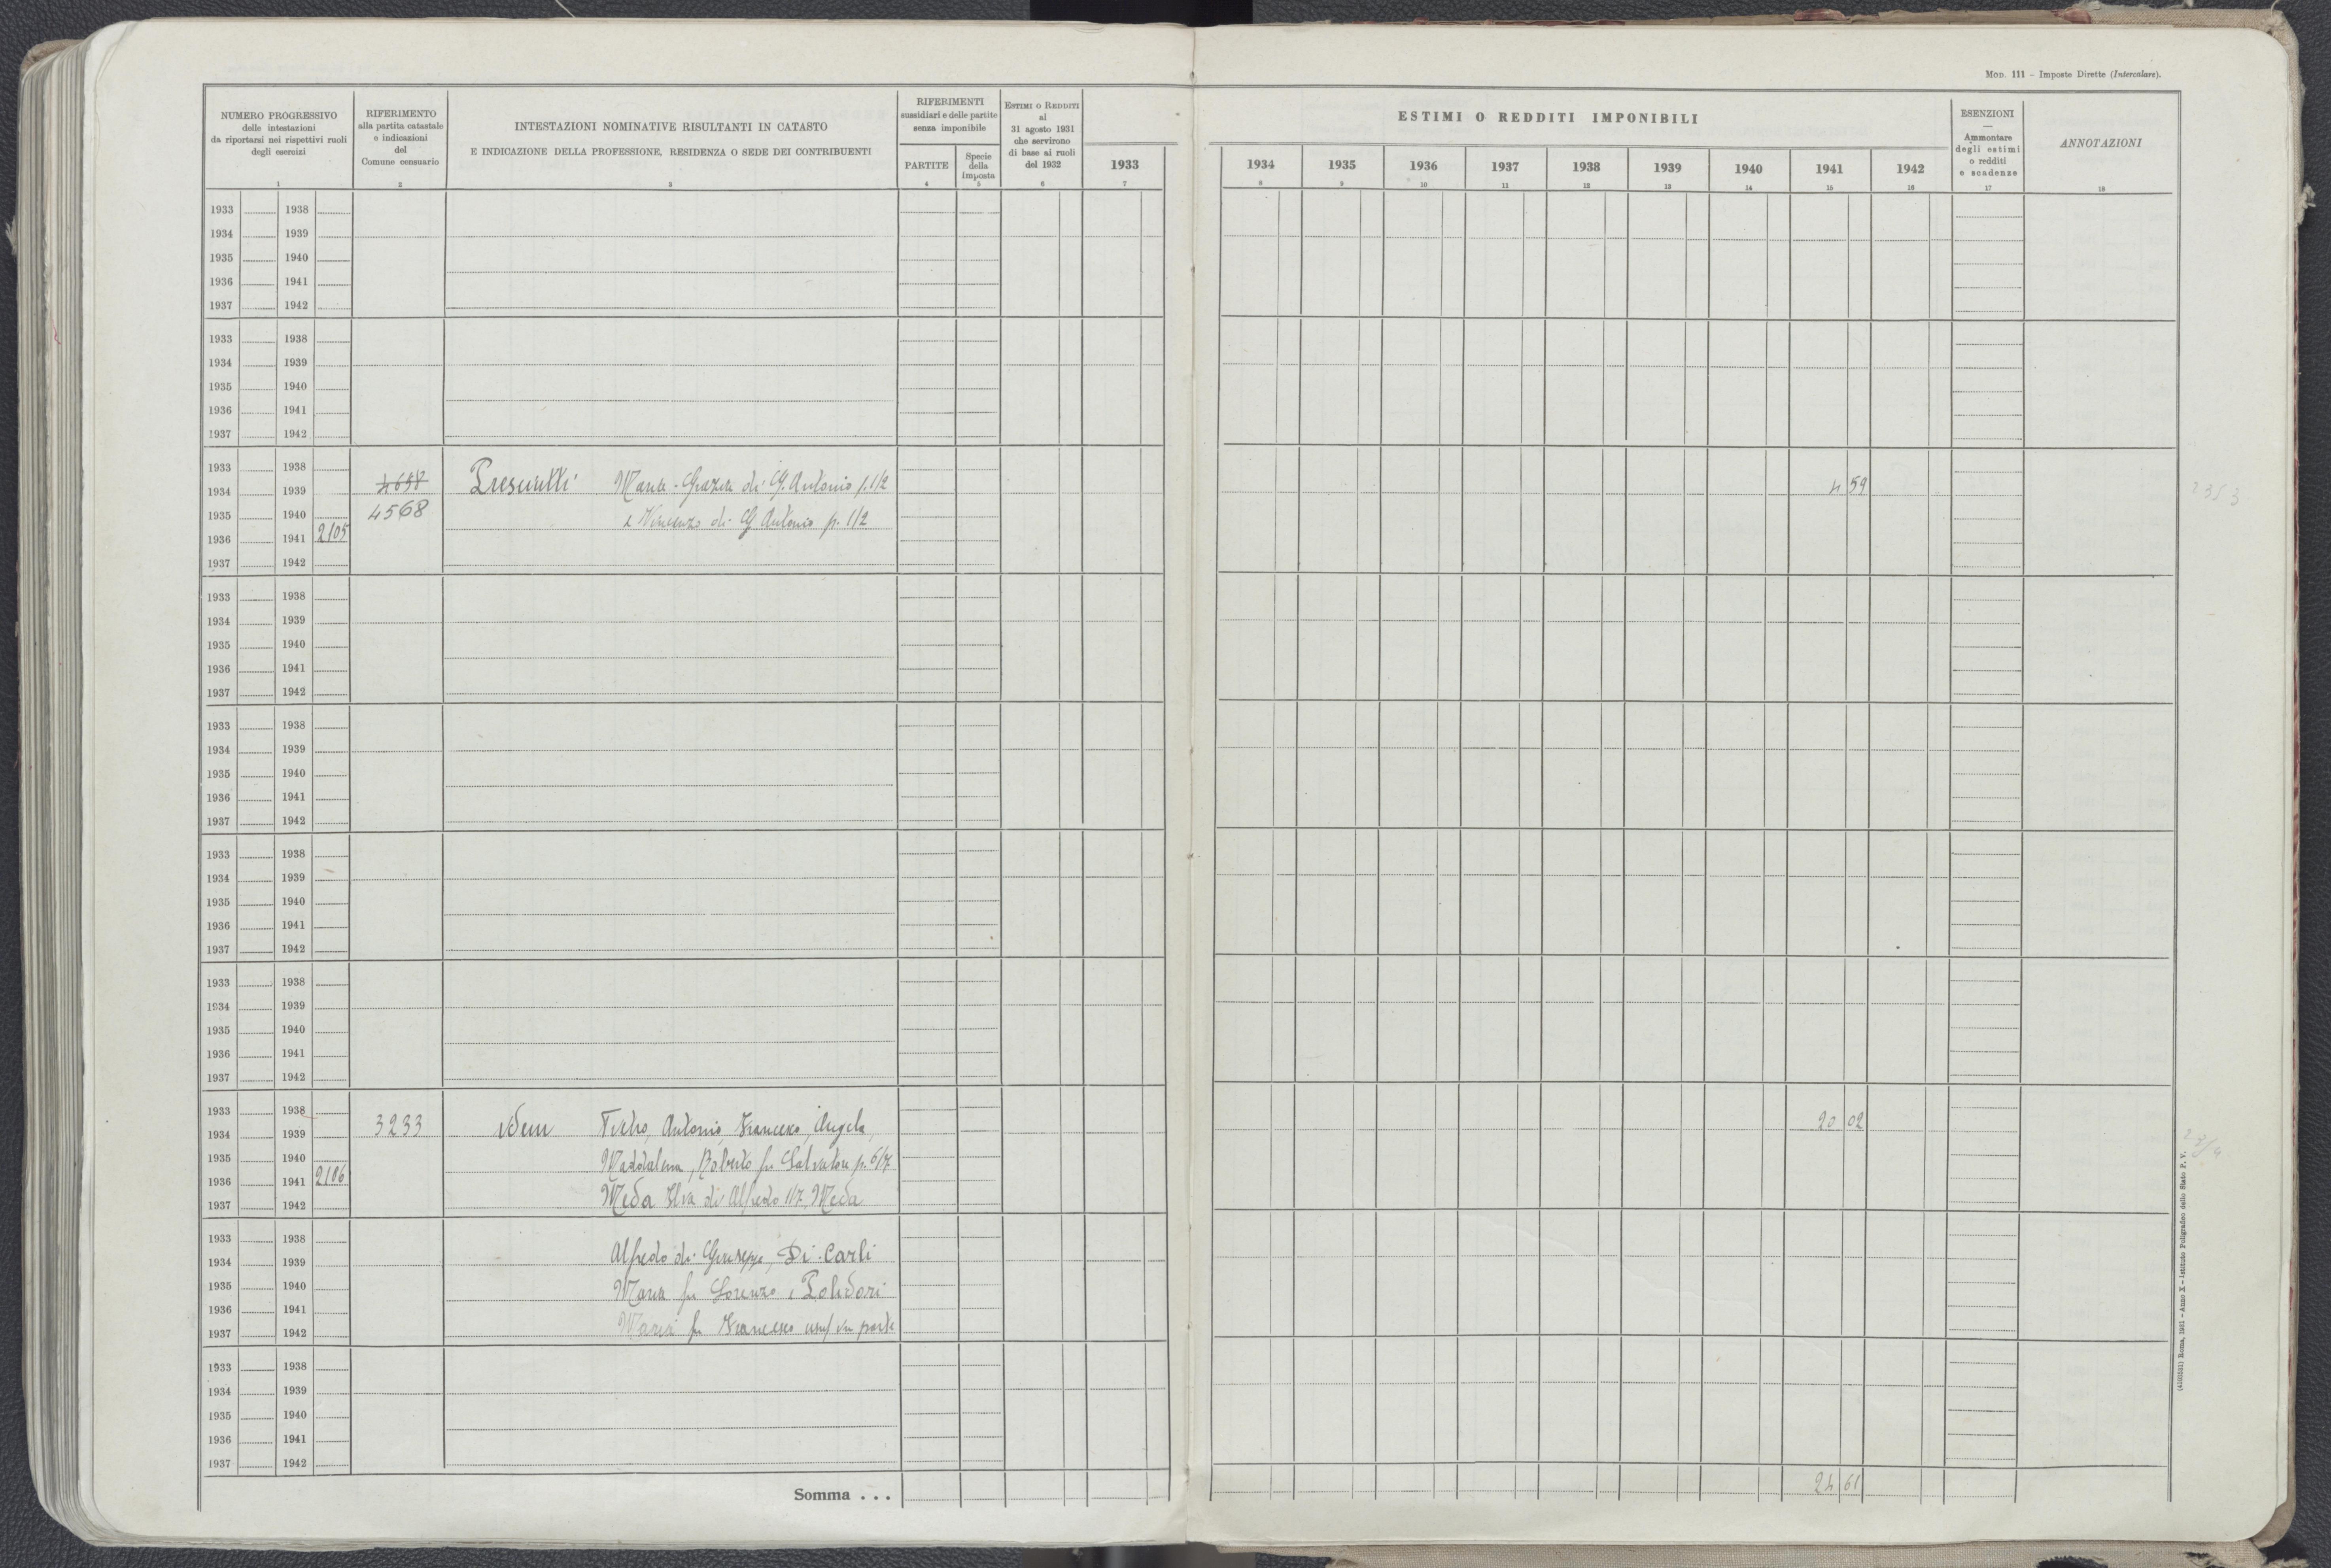 Mod. 111 - Imposte Dirette (Intercalare).
NUMERO PROGRESSIVO
delle intestazioni
da riportarsi nei rispettivi ruoli
degli esercizi
1
RIFERIMENTO
alla partita catastale
e indicazioni
del
Comune censuario
2
INTESTAZIONI NOMINATIVE RISULTANTI IN CATASTO
E INDICAZIONE DELLA PROFESSIONE, RESIDENZA O SEDE DEI CONTRIBUENTI
3
RIFERIMENTI
sussidiari e delle partite
senza imponibile
PARTITE
4
Specie
della
imposta
5
ESTIMI O REDDITI
al
31 agosto 1931
che servirono
di base ai ruoli
del 1932
6
1933
7
ESTIMI O REDDITI IMPONIBILI
1934 1935 1936 1937 1938 1939 1940 1941 1942
8 9 10 11 12 13 14 15 16
ESENZIONI
—
Ammontare
degli estimi
o redditi
e scadenze
17
ANNOTAZIONI
18
1933 1938
1934 1939
1935 1940
1936 1941
1937 1942
1933 1938
1934 1939
1935 1940
1936 1941
1937 1942
1933 1938
1934 1939 4658 Maria-Grazia di G. Antonio p. 1/2 4 59
1935 1940 4568 e Vincenzo di G Antonio p. 1/2
1936 1941 2105
1937 1942
1933 1938
1934 1939
1935 1940
1936 1941
1937 1942
1933 1938
1934 1939
1935 1940
1936 1941
1937 1942
1933 1938
1934 1939
1935 1940
1936 1941
1937 1942
1933 1938
1934 1939
1935 1940
1936 1941
1937 1942
1933 1938
1934 1939 3233 Idem Antonio, Francesco, Angela, 20 02
1935 1940 Maddalena, Roberto fu Salvatore p. 6/7
1936 1941 2106
1937 1942 Meda Elva di Alfredo 1/7, Meda
1933 1938
1934 1939 Alfredo di Giuseppe, Di Carli
1935 1940 Maria fu Lorenzo e Polidori
1936 1941
1937 1942 Maria fu Francesco usuf in parte
1933 1938
1934 1939
1935 1940
1936 1941
1937 1942
Somma . . . 24 61
2353
(4103231) Roma, 1931 - Anno X - Istituto Poligrafico dello Stato P. V.